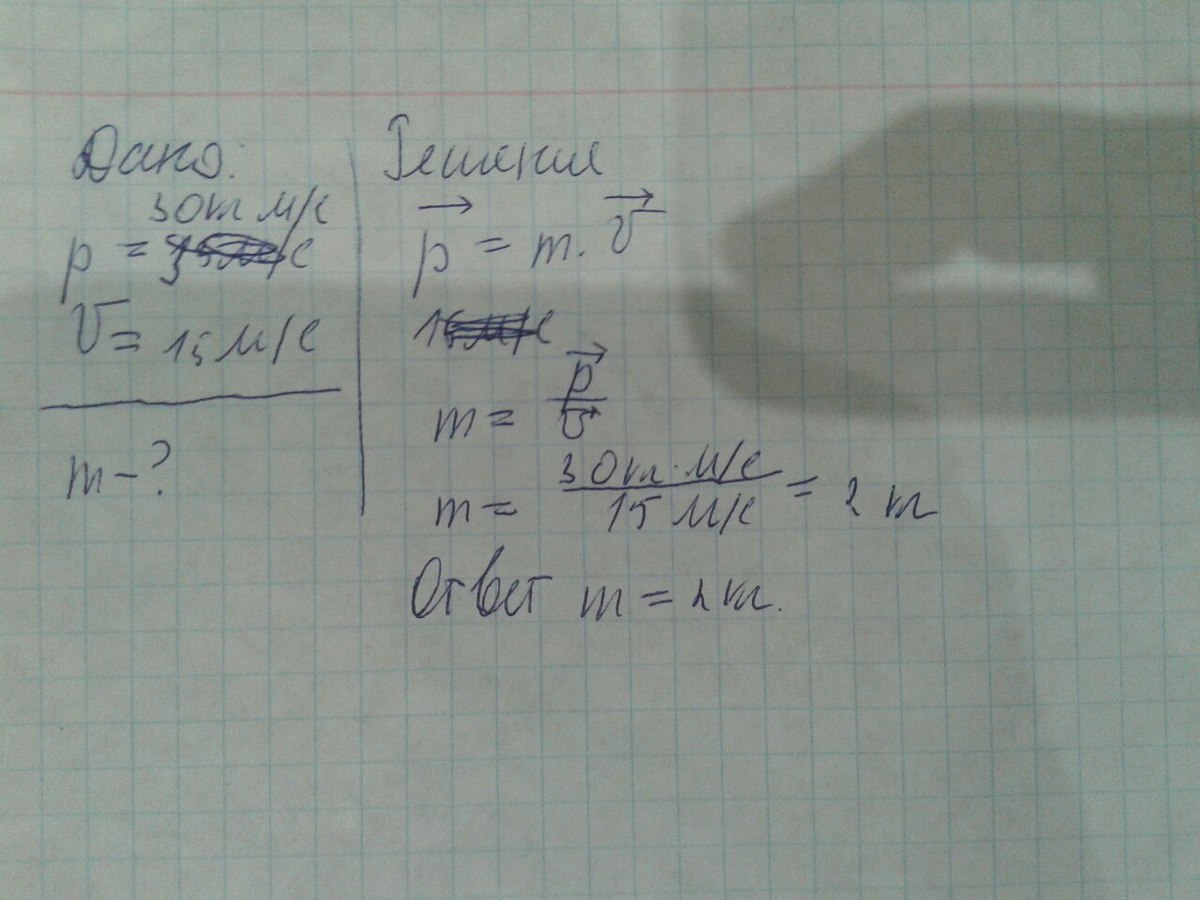 Дано:
30 м/с
p =
V = 15 м/с
m – ?
Решение
p = m · V
m = p / V
m = 30 кг · м/с / 15 м/с = 2 кг
Ответ m = 2 кг.